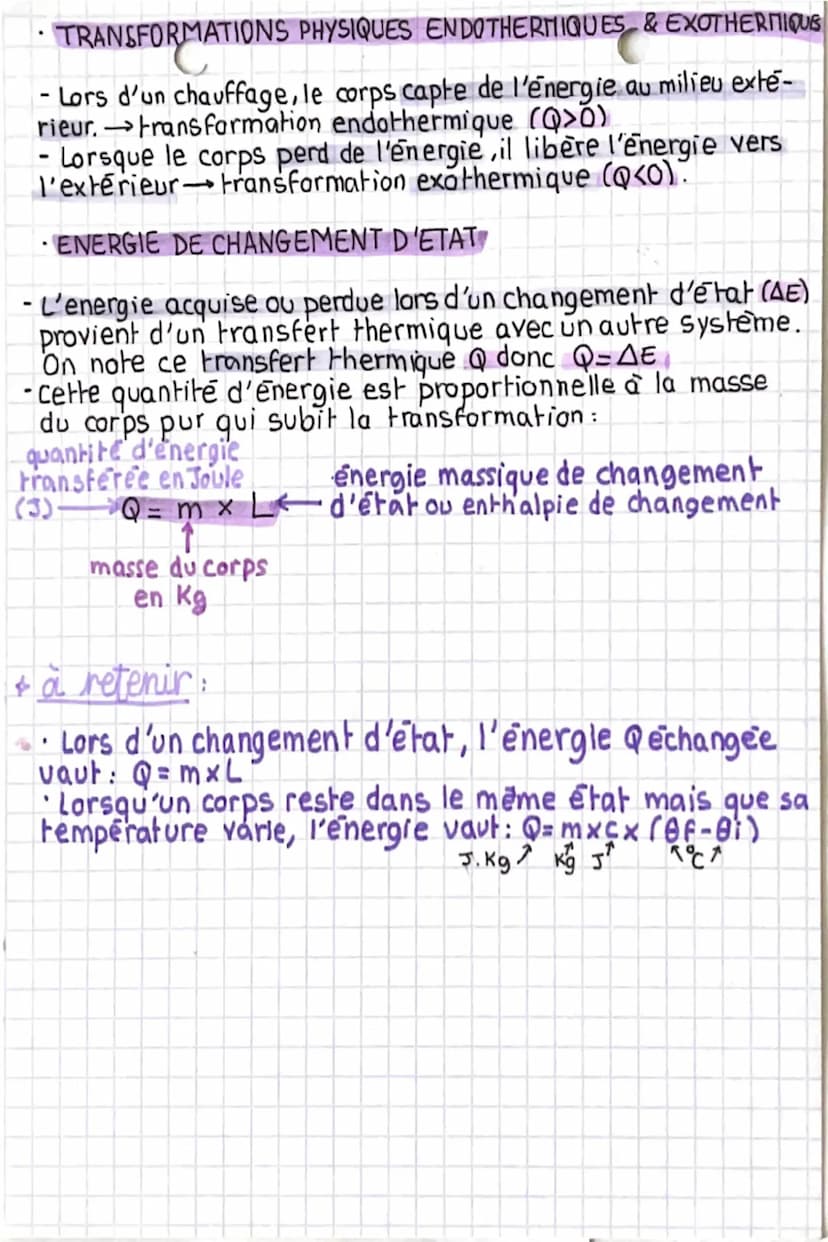 · TRANSFORMATIONS PHYSIQUES ENDOTHERMIQUES & EXOTHERMIQUES
- Lors d'un chauffage, le corps capte de l'énergie au milieu exté-
rieur. → transformation endothermique (Q>0)
- Lorsque le corps perd de l'énergie, il libère l'énergie vers
l'extérieur → transformation exothermique (Q<0).
· ENERGIE DE CHANGEMENT D'ETAT
- L'energie acquise ou perdue lors d'un changement d'état (ΔE)
provient d'un transfert thermique avec un autre système.
On note ce transfert thermique Q donc Q=ΔE
- cette quantité d'énergie est proportionnelle à la masse
du corps pur qui subit la transformation :
quantité d'énergie
transférée en Joule
(J) → Q = m × L ← énergie massique de changement
d'état ou enthalpie de changement
↑
masse du corps
en Kg
+ à retenir :
· Lors d'un changement d'état, l'énergie Q échangée
vaut : Q = m x L
· Lorsqu'un corps reste dans le même état mais que sa
température varie, l'énergie vaut : Q= m x c x (θf-θi)
J.Kg ↗ Kg ↑ J ↑ ↖ °C ↗